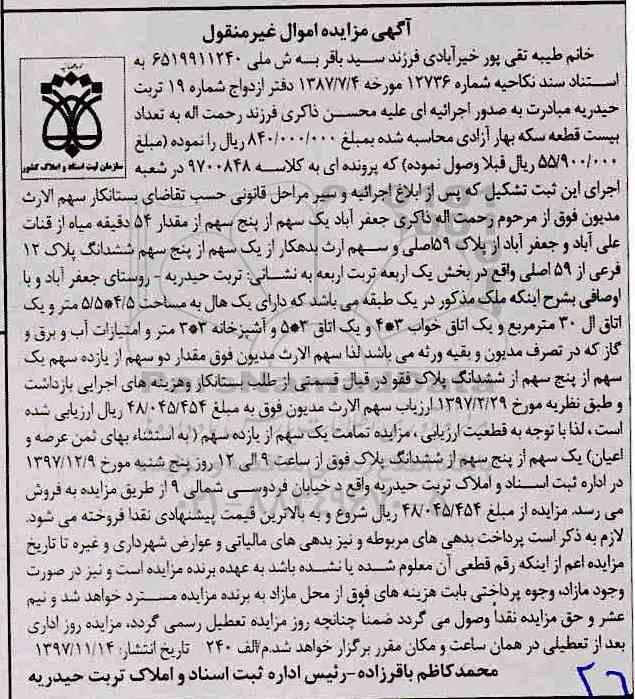 آگهی مزایده اموال غیرمنقول
خانم طیبه تقی پور خیرآبادی فرزند سید باقر به ش ملی ۶۵۱۹۹۱۱۲۴۰ به
استناد سند نکاحیه شماره ۱۲۷۳۶ مورخه ۱۳۸۷/۷/۴ دفتر ازدواج شماره ۱۹ تربت
حیدریه مبادرت به صدور اجرائیه ای علیه محسن ذاکری فرزند رحمت اله به تعداد
بیست قطعه سکه بهار آزادی محاسبه شده بمبلغ ۸۴۰/۰۰۰/۰۰۰ ریال را نموده (مبلغ
۵۵/۹۰۰/۰۰۰ ریال قبلا وصول نموده) که پرونده ای به کلاسه ۹۷۰۰۸۴۸ در شعبه
سازمان ثبت اسناد و املاک کشور
اجرای این ثبت تشکیل که پس از ابلاغ اجرائیه و سیر مراحل قانونی حسب تقاضای بستانکار سهم الارث
مدیون فوق از مرحوم رحمت اله ذاکری جعفر آباد یک سهم از پنج سهم از مقدار ۵۴ دقیقه میاه از قنات
علی آباد و جعفر آباد از پلاک ۵۹اصلی و سهم ارث بدهکار از یک سهم از پنج سهم ششدانگ پلاک ۱۲
فرعی از ۵۹ اصلی واقع در بخش یک اربعه تربت اربعه به نشانی: تربت حیدریه - روستای جعفر آباد و با
اوصافی بشرح اینکه ملک مذکور در یک طبقه می باشد که دارای یک هال به مساحت ۴/۵*۵/۵ متر و یک
اتاق ال ۳۰ مترمربع و یک اتاق خواب ۳*۴ و یک اتاق ۳*۵ و آشپزخانه ۳*۳ متر و امتیازات آب و برق و
گاز که در تصرف مدیون و بقیه ورثه می باشد لذا سهم الارث مدیون فوق مقدار دو سهم از یازده سهم یک
سهم از پنج سهم از ششدانگ پلاک فقو در قبال قسمتی از طلب بستانکار وهزینه های اجرایی بازداشت
و طبق نظریه مورخ ۱۳۹۷/۲/۲۹ ارزیاب سهم الارث مدیون فوق به مبلغ ۴۸/۰۴۵/۴۵۴ ریال ارزیابی شده
است ، لذا با توجه به قطعیت ارزیابی ، مزایده تمامت یک سهم از یازده سهم ( به استثناء بهای ثمن عرصه و
اعیان) یک سهم از پنج سهم از ششدانگ پلاک فوق از ساعت ۹ الی ۱۲ روز پنج شنبه مورخ ۱۳۹۷/۱۲/۹
در اداره ثبت اسناد و املاک تربت حیدریه واقع د خیابان فردوسی شمالی ۹ از طریق مزایده به فروش
می رسد. مزایده از مبلغ ۴۸/۰۴۵/۴۵۴ ریال شروع و به بالاترین قیمت پیشنهادی نقدا فروخته می شود.
لازم به ذکر است پرداخت بدهی های مربوطه و نیز بدهی های مالیاتی و عوارض شهرداری و غیره تا تاریخ
مزایده اعم از اینکه رقم قطعی آن معلوم شده یا نشده باشد به عهده برنده مزایده است و نیز در صورت
وجود مازاد، وجوه پرداختی بابت هزینه های فوق از محل مازاد به برنده مزایده مسترد خواهد شد و نیم
عشر و حق مزایده نقداً وصول می گردد ضمناً چنانچه روز مزایده تعطیل رسمی گردد، مزایده روز اداری
بعد از تعطیلی در همان ساعت و مکان مقرر برگزار خواهد شد.م/الف ۲۴۰ تاریخ انتشار: ۱۳۹۷/۱۱/۱۴
محمدکاظم باقرزاده-رئیس اداره ثبت اسناد و املاک تربت حیدریه
۲۶